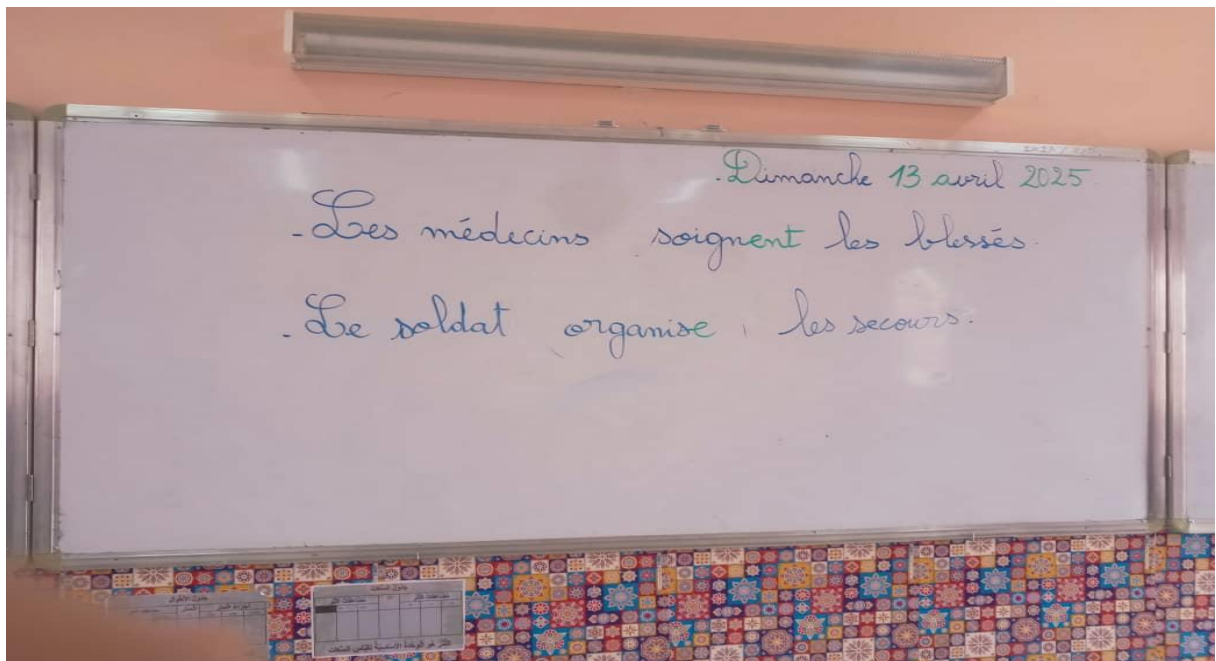 .Dimanche 13 avril 2025.
- Les médecins soignent les blessés.
- Le soldat organise les secours.